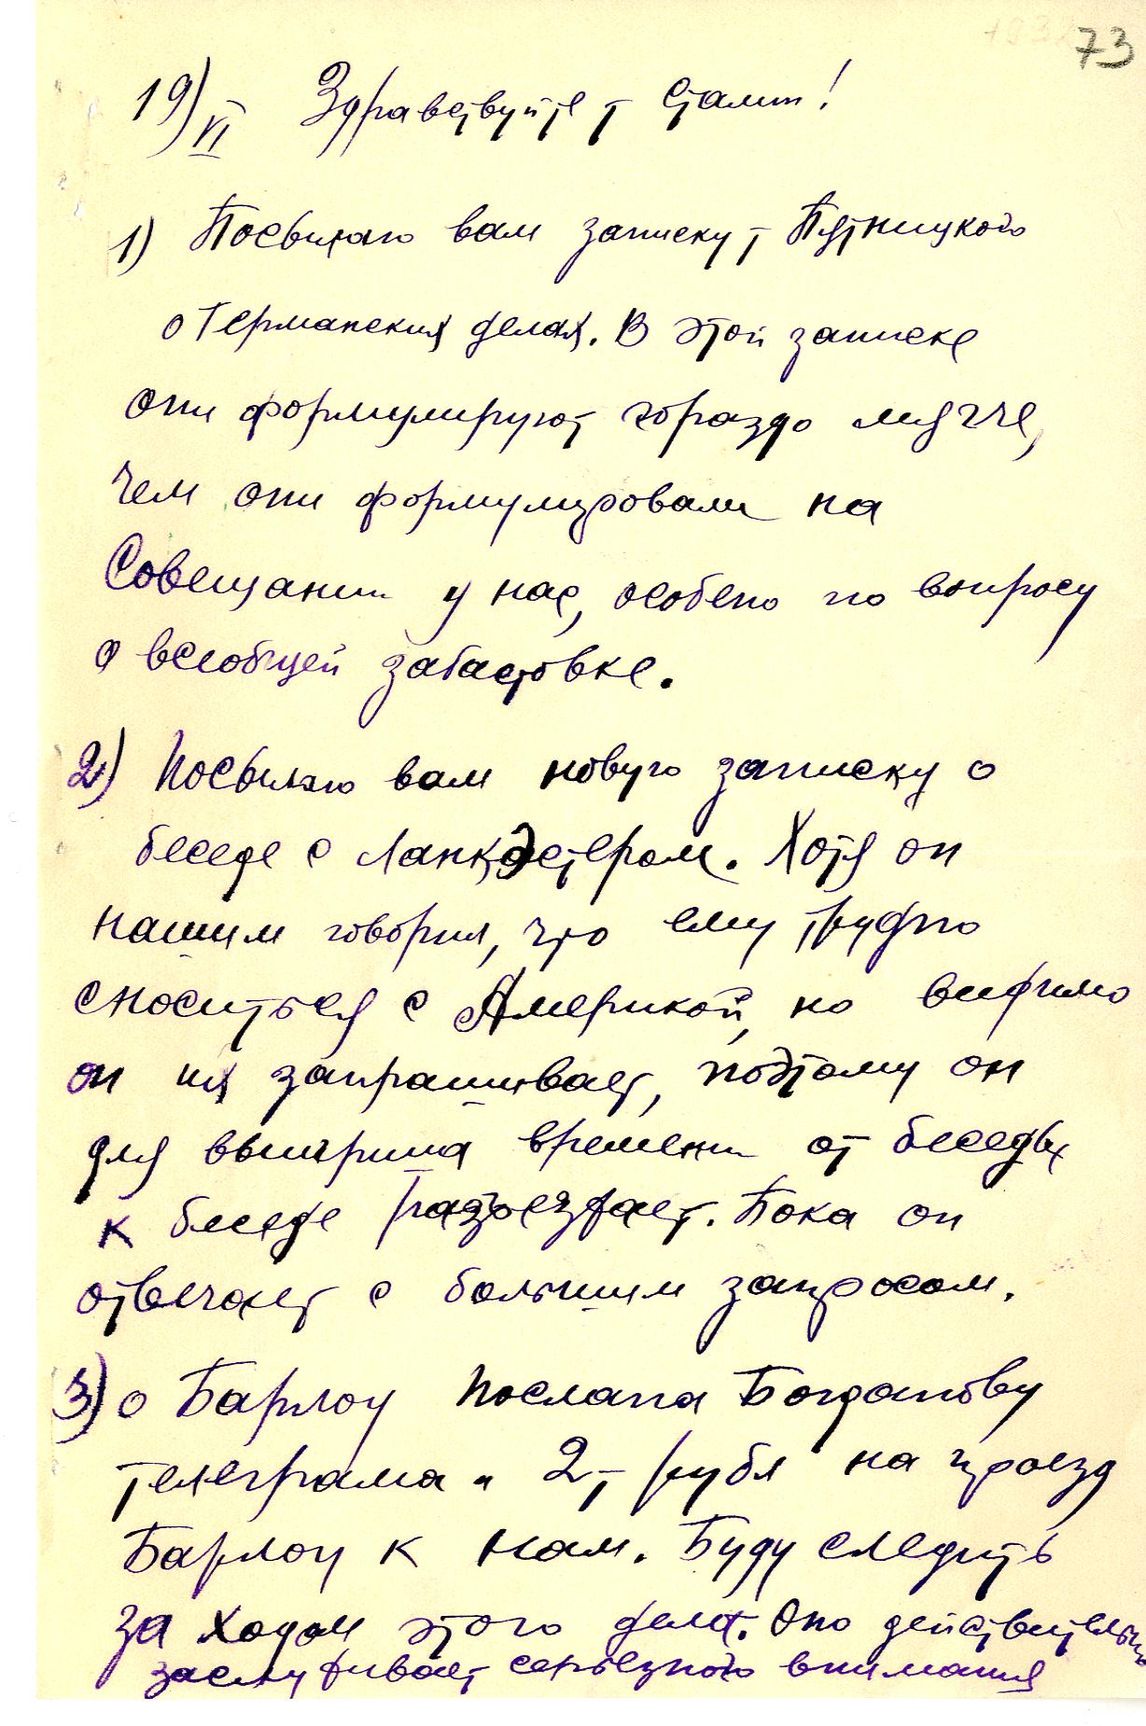 73
19/VI Здравствуйте т Сталин!
1) Посылаю вам записку т Пятницкого
о Германских делах. В этой записке
они формулируют гораздо мягче,
чем они формулировали на
Совещании у нас, особено по вопросу
о всеобщей забастовке.
2) Посылаю вам новую записку о
беседе с Ланкастером. Хотя он
нашим говорил, что ему трудно
сноситься с Америкой, но видимо
он их запрашивает, поэтому он
для выигриша времени от беседы
к беседе разъезжает. Пока он
отвечает с большим запросом.
3) о Барлоу послана Богданову
телеграма и 2 т рубл на проезд
Барлоу к нам. Буду следить
за ходом этого дела. Оно действительно
заслуживает серьезного внимания